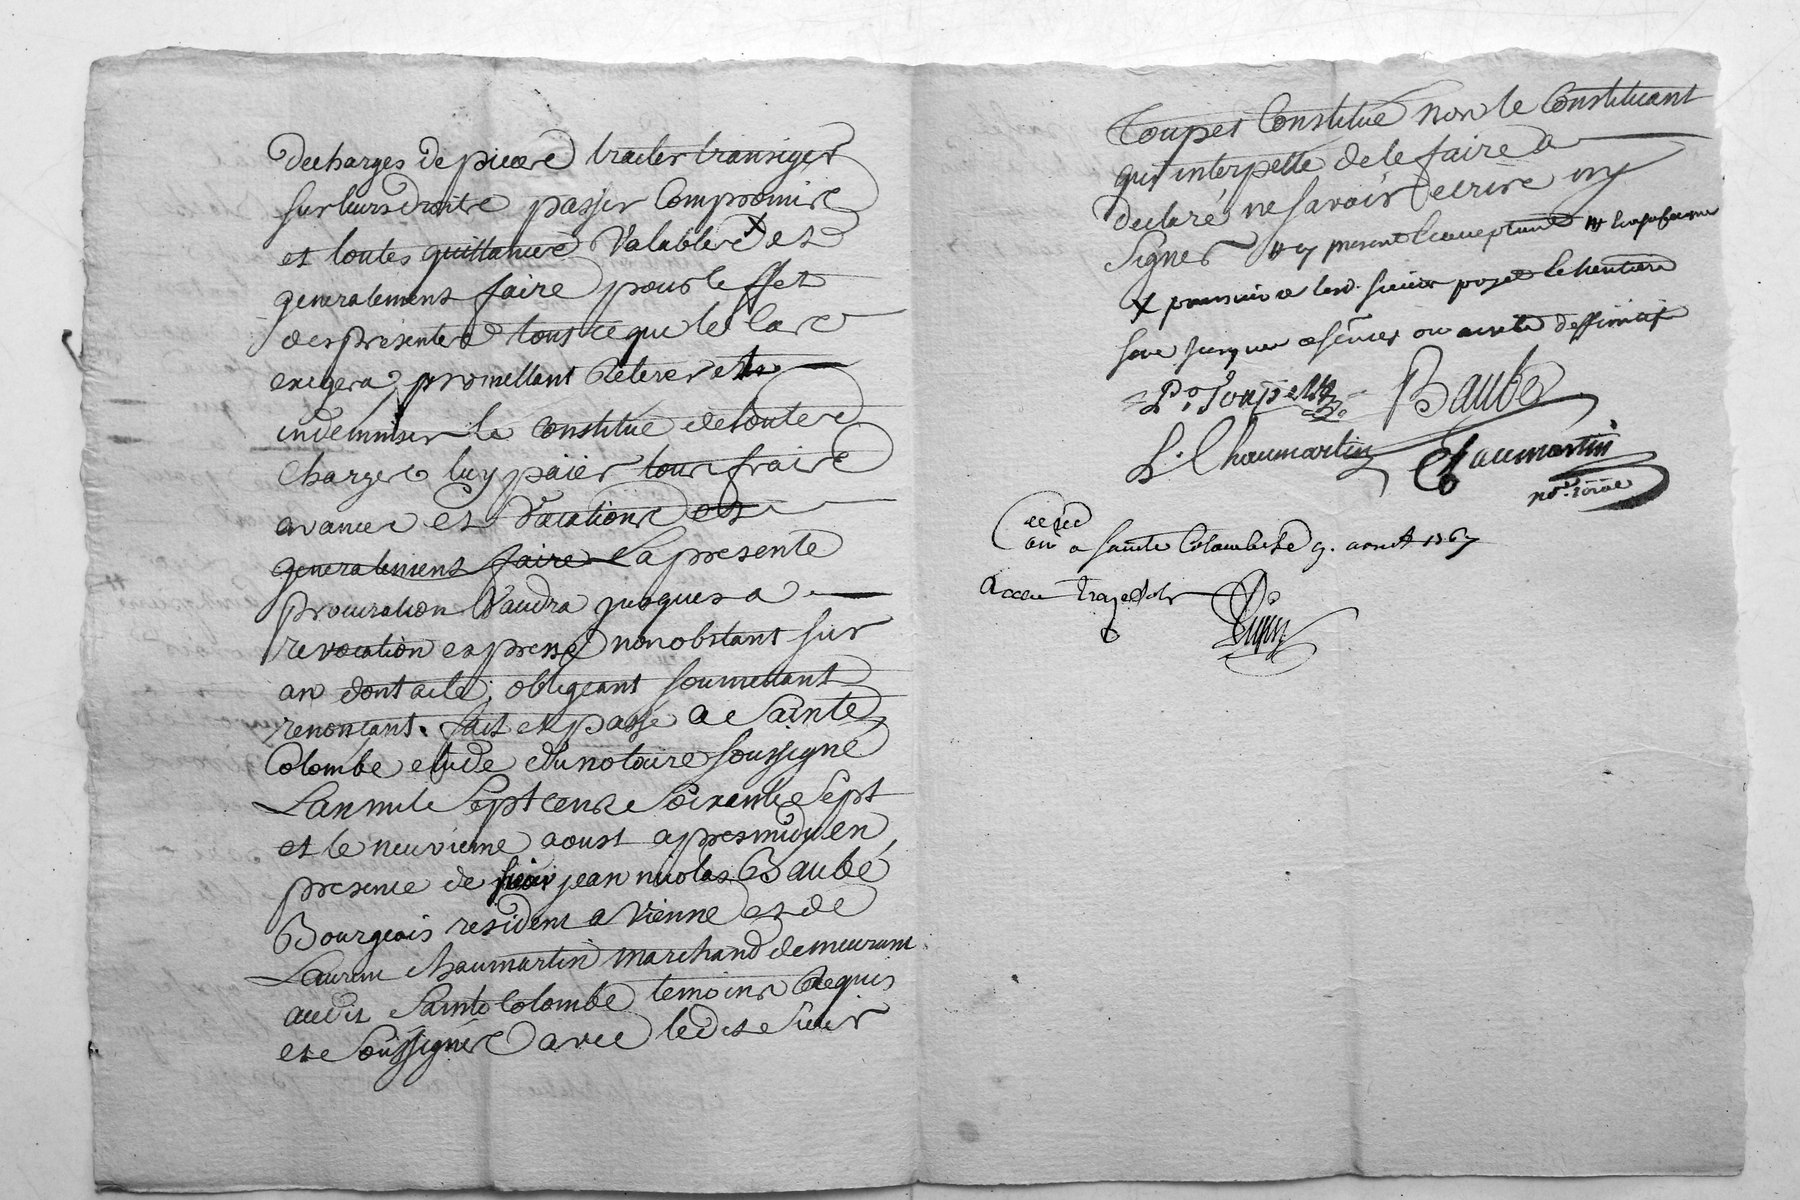 decharges de pieces traiter transiger
sur leurs droits passer Compromis
et toutes quittances Valables X et
generalement faire pour leffet
des presentes tous ce que le Cas
exigera, promettant Relever et
indemniser le Constitué de toutes
Charges luy païer tous fraix
avances et Vacations et
generalement faire La presente
procuration Vaudra jusques a
revocation expresse nonobstant sur
an dont acte, obligeant soumettant
renonçant. fait et passé a Sainte
Colombe etude du notaire soussigné
Lan mil Sept cents Soixante Sept
et le neuvieme aoust apres midy en
presence de sieur jean nicolas Baubé
Bourgeois resident a Vienne et de
Laurent chaumartin marchand demeurant
audit Sainte Colombe temoins Requis
et Soussignés avec ledit Sieur
Toupet Constitué non le Constituant
qui interpellé de le faire a
declaré ne savoir ecrire ny
Signer # y present acceptant
X
Po. Toupet Baubé
L. Chaumartin Chaumartin
Nore. Royal
a Sainte Colombe le 9. aout 1767